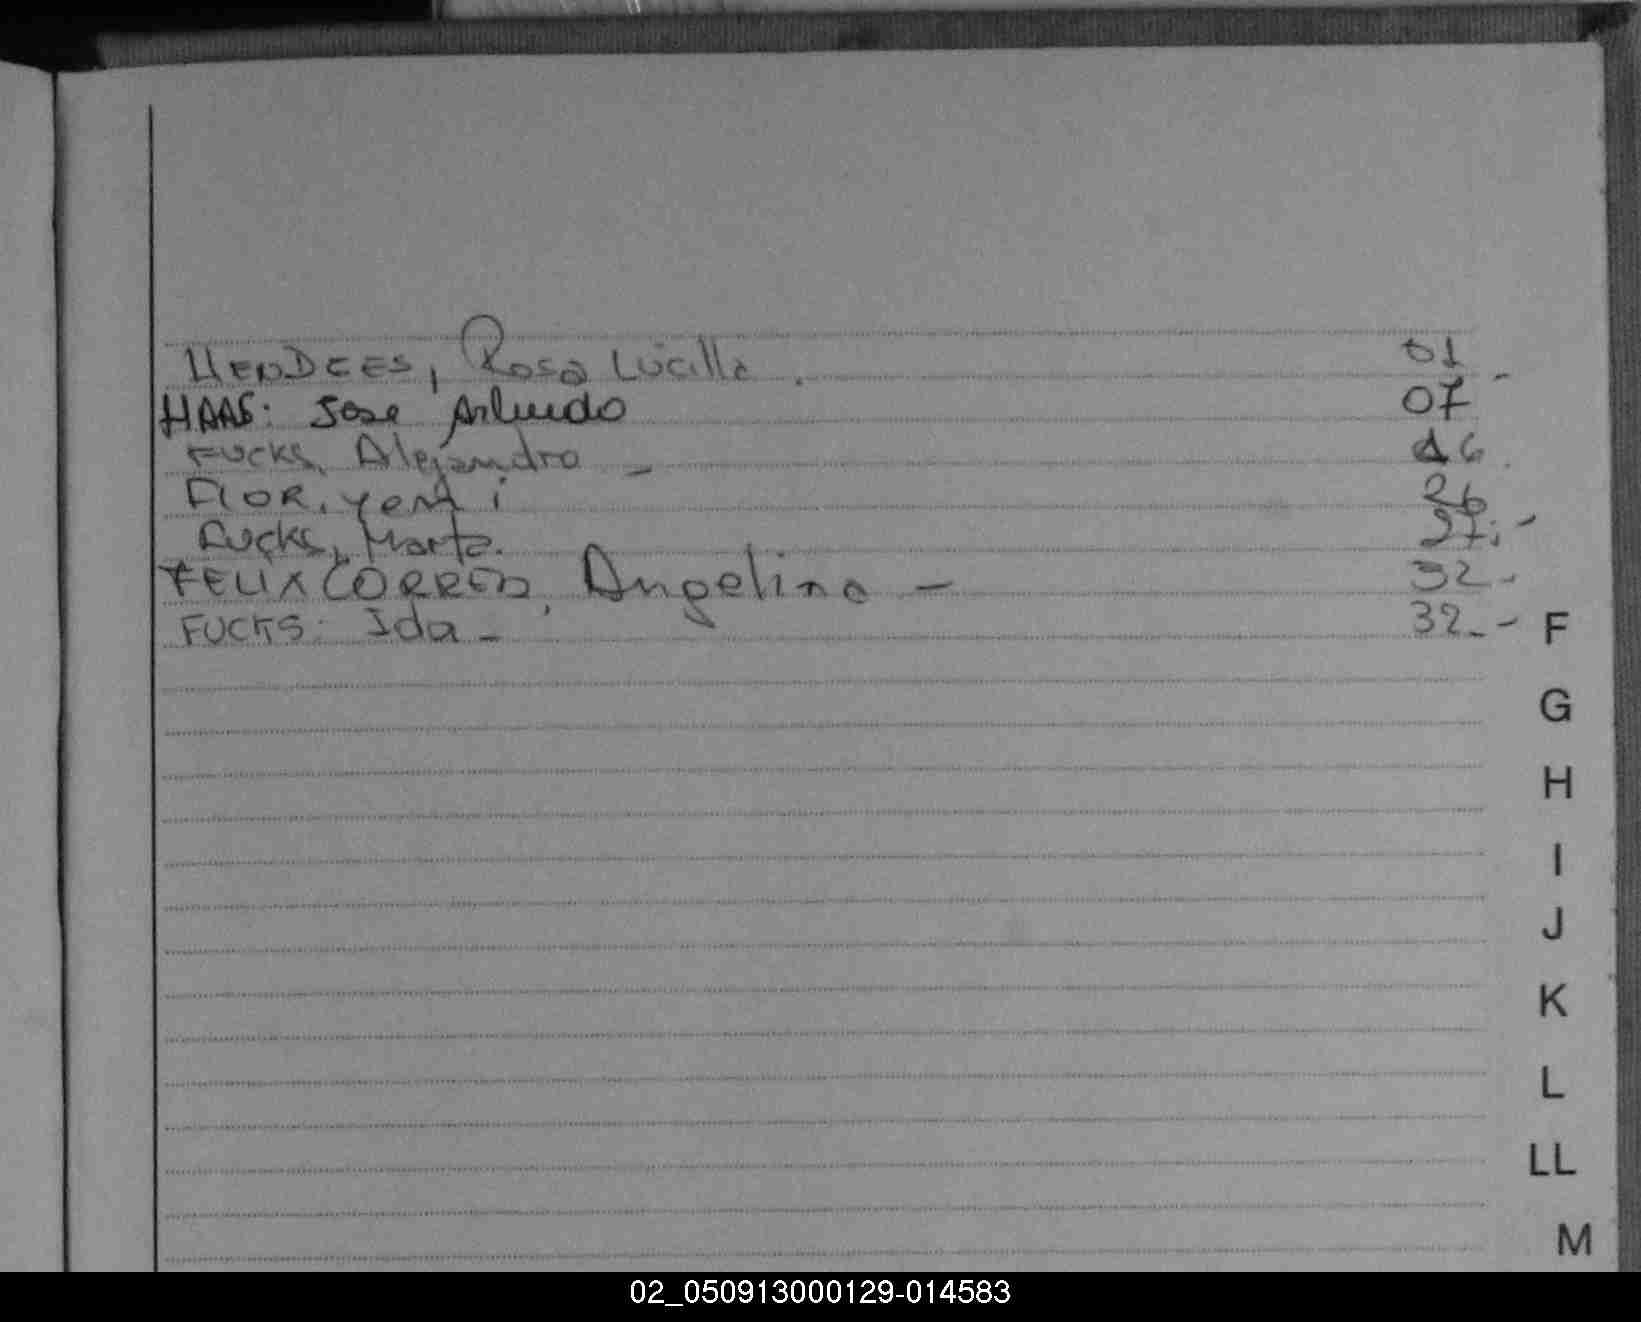 HENDGES, Rosa Lucilla. 01
HAAS: Jose Arlindo 07
FUCKS, Alejandro - 16
FLOR, yeni 26
Fucks, Marta. 27. -
FELIX CORREA, Angelina - 32 -
FUCKS: Ida - 32 - -
F
G
H
I
J
K
L
LL
M
02_050913000129-014583